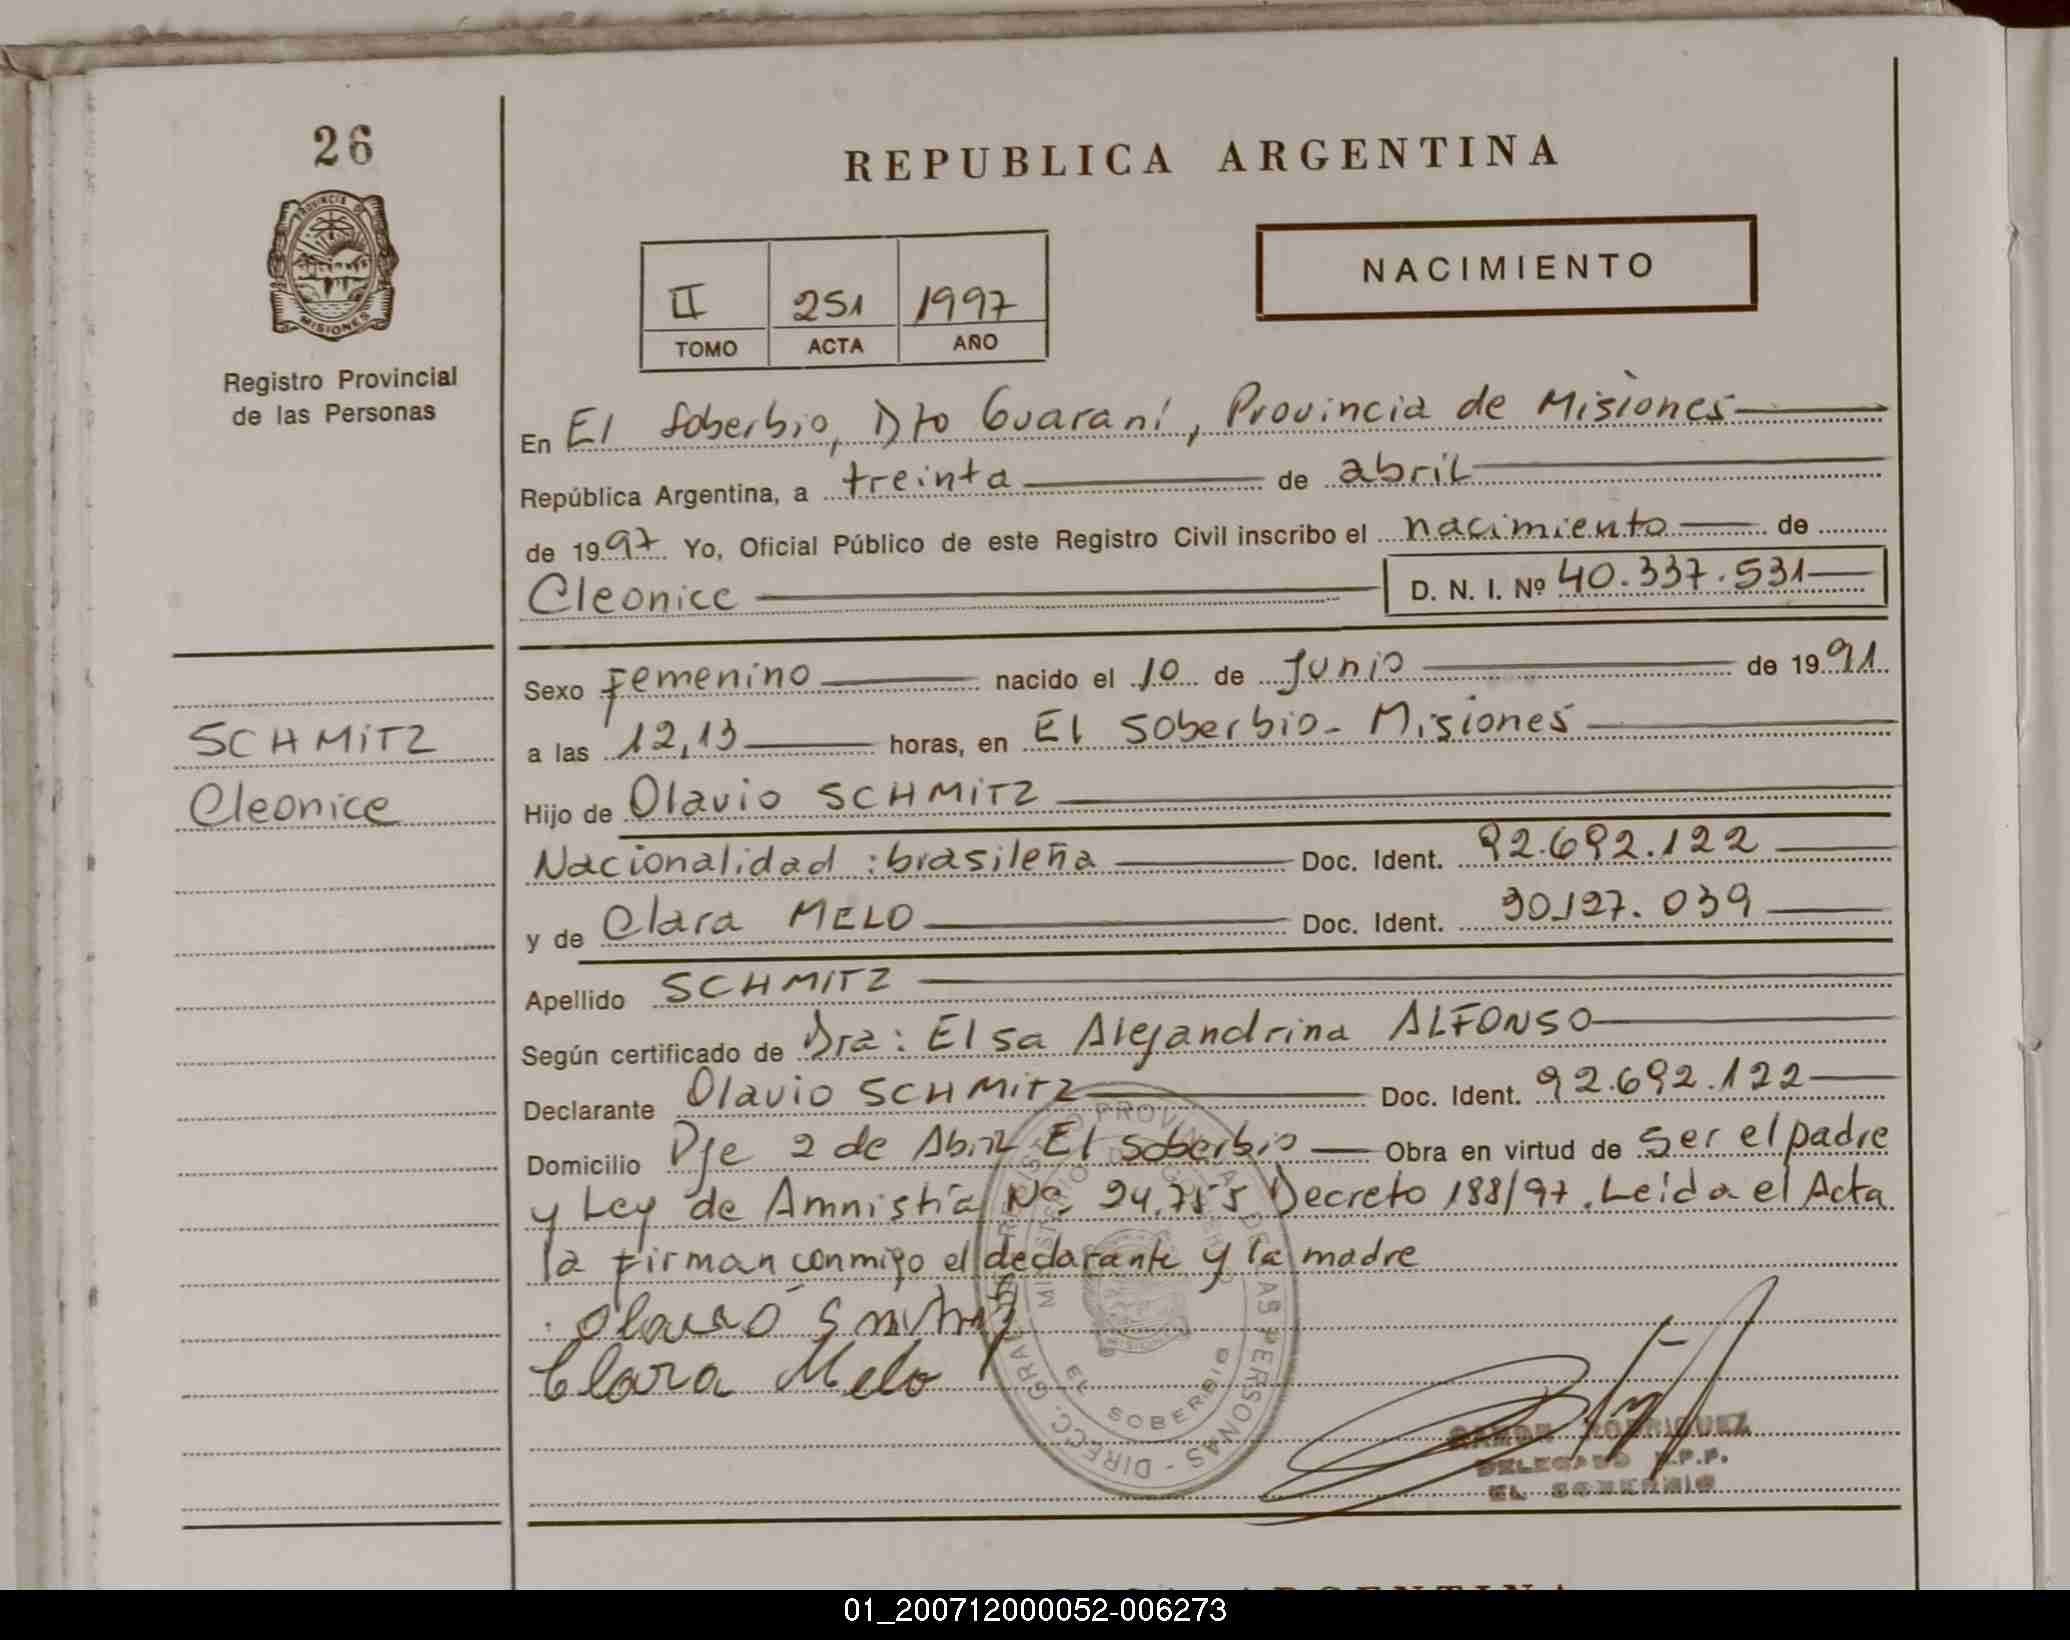 26
PROVINCIA DE
MISIONES
Registro Provincial
de las Personas
SCHMITZ
Cleonice
REPUBLICA ARGENTINA
II 251 1997
TOMO ACTA AÑO
NACIMIENTO
En El Soberbio, Dto Guaraní, Provincia de Misiones
República Argentina, a treinta de abril
de 1997 Yo, Oficial Público de este Registro Civil inscribo el nacimiento de
Cleonice D. N. I. Nº 40.337.531
Sexo Femenino nacido el 10 de Junio de 1991
a las 12,13 horas, en El Soberbio - Misiones
Hijo de Olavio SCHMITZ
Nacionalidad: brasileña Doc. Ident. 92.692.122
y de Clara MELO Doc. Ident. 90.127.039
Apellido SCHMITZ
Según certificado de Dra: Elsa Alejandrina ALFONSO
Declarante Olavio SCHMITZ Doc. Ident. 92.692.122
Domicilio Pje 2 de Abril El Soberbio Obra en virtud de ser el padre
y Ley de Amnistía Nº 24.755 Decreto 188/97. Leída el Acta
la firman conmigo el declarante y la madre
Clara Melo
DIRECC. GRAL. REGISTRO PROVINCIAL DE LAS PERSONAS
MINISTERIO DE GOBIERNO
EL SOBERBIO
RAMON RODRIGUEZ
DELEGADO R.P.P.
EL SOBERBIO
01_200712000052-006273